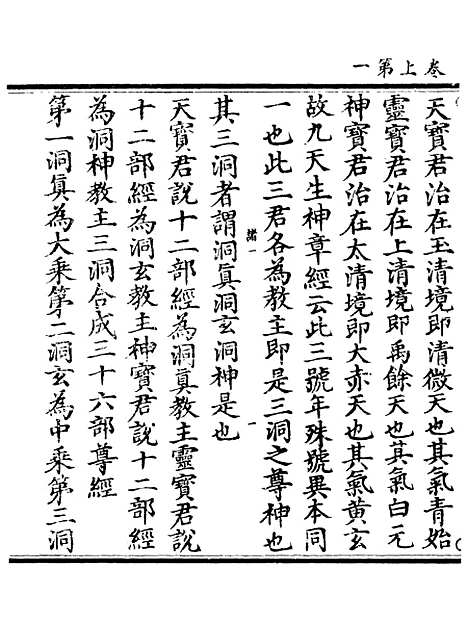 卷上第一
天寶君治在玉清境即清微天也其氣青始
靈寶君治在上清境即禹餘天也其氣白元
神寶君治在太清境即大赤天也其氣黃玄
故九天生神章經云此三號年殊號異本同
一也此三君各為教主即是三洞之尊神也
其三洞者謂洞眞洞玄洞神是也
天寶君說十二部經為洞眞教主靈寶君說
十二部經為洞玄教主神寶君說十二部經
為洞神教主三洞合成三十六部尊經
第一洞眞為大乘第二洞玄為中乘第三洞